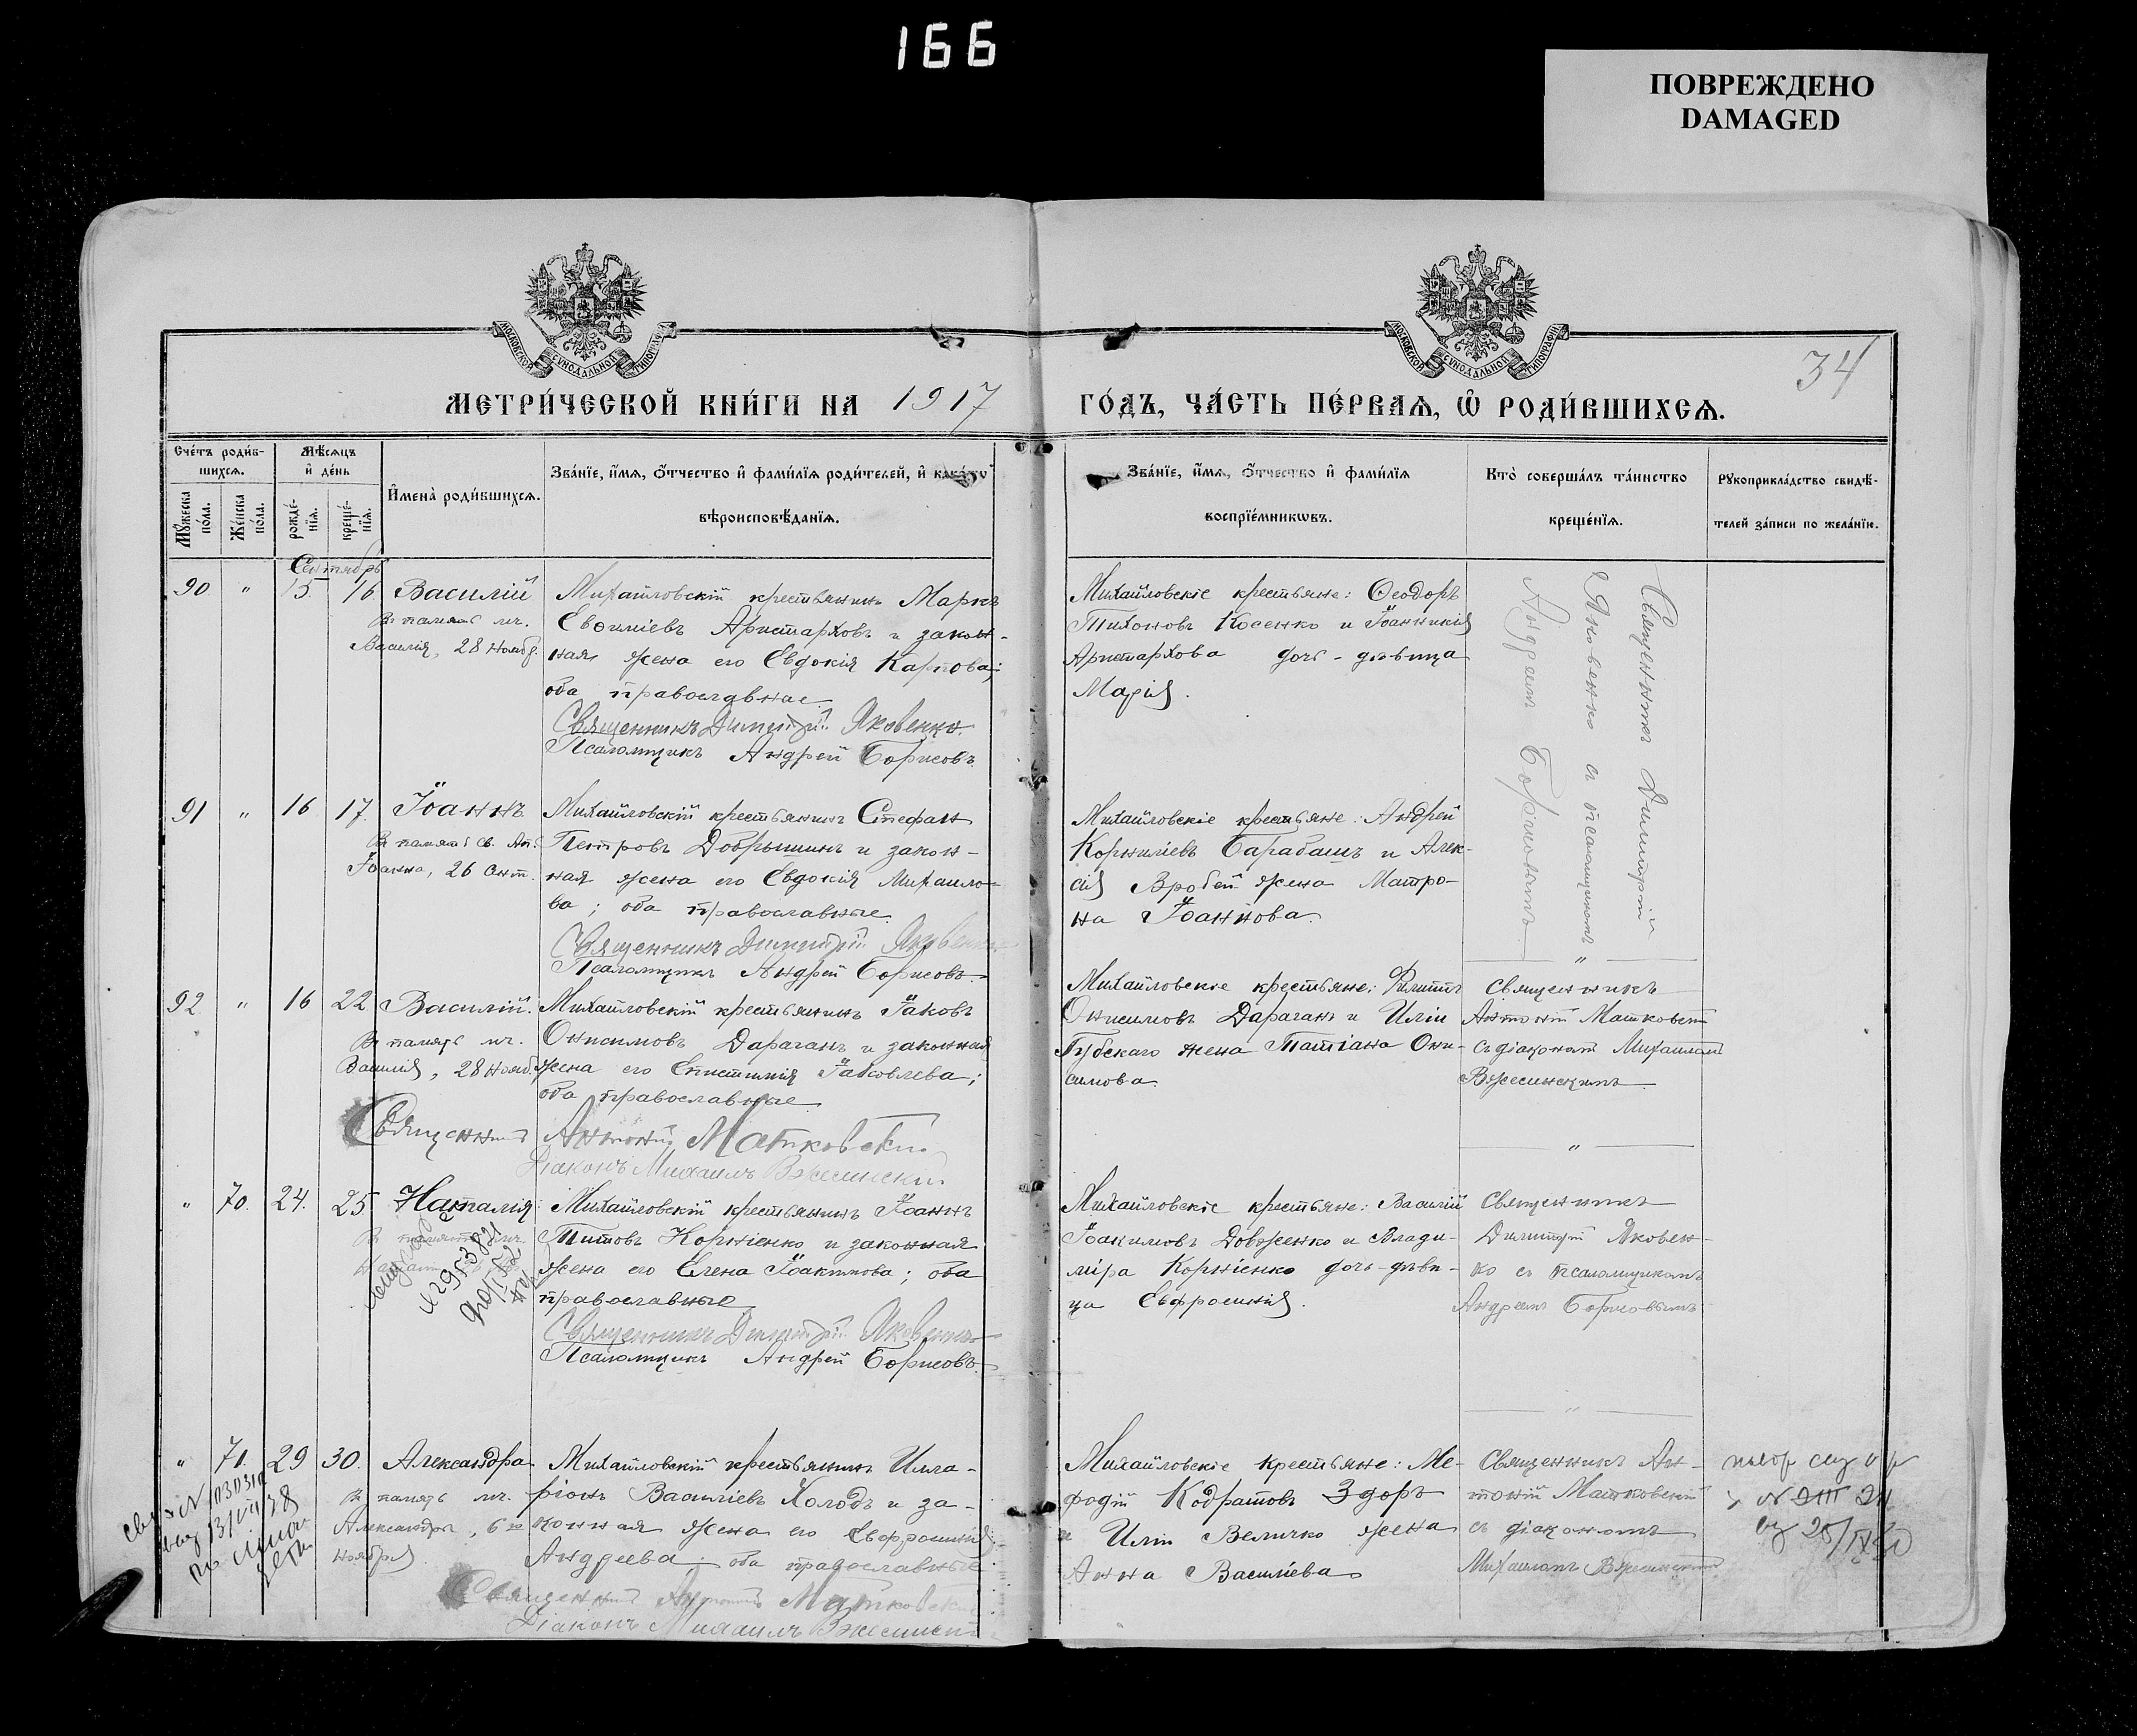 166
ПОВРЕЖДЕНО
DAMAGED
МОСКОВСКОЙ СѴНОДАЛЬНОЙ ТИПОГРАФІИ
МОСКОВСКОЙ СѴНОДАЛЬНОЙ ТИПОГРАФІИ
34
МЕТРИ́ЧЕСКОЙ КНИ́ГИ НА 1917
ГО́ДЪ, ЧА́СТЬ ПЕ́РВАѦ, Ѡ҆ РОДИ́ВШИХСѦ.
Сче́тъ роди́в-
шихсѧ.
Мѣ́сѧцъ
и҆ де́нь
Мꙋ́жеска
по́ла.
Же́нска
по́ла.
рожде́-
нїѧ.
креще́-
нїѧ.
И҆мена̀ роди́вшихсѧ.
Зва́нїе, и҆́мѧ, ѻ҆́тчество и҆ фами́лїѧ роди́телей, и҆ како́гѡ
вѣроисповѣ́данїѧ.
Зва́нїе, и҆́мѧ, ѻ҆́тчество и҆ фами́лїѧ
воспрїе́мникѡвъ.
Кто̀ соверша́лъ та́инство
креще́нїѧ.
Рꙋкоприкла́дство свидѣ́-
телей за́писи по жела́нїю.
Сентябрь
90 " 15 16 Василій
Въ память мч.
Василія, 28 нояб.
Михайловскій крестьянинъ Маркъ
Евѳиміевъ Аристарховъ и закон-
ная жена его Евдокія Карпова;
оба православные
Священникъ Димитрій Яковенко.
Псаломщикъ Андрей Борисовъ.
Михайловскіе крестьяне: Ѳеодоръ
Тихоновъ Косенко и Іоанникія
Аристархова дочь-дѣвица
Марія.
Священникъ Димитрій
Яковенко съ псаломщикомъ
Андреемъ Борисовымъ.
91 " 16 17. Іоаннъ
Въ память Св. Ап.
Іоанна, 26 Сент.
Михайловскій крестьянинъ Стефан
Петровъ Добрышинъ и закон-
ная жена его Евдокія Михайло-
ва; оба православные
Священникъ Димитрій Яковенко
Псаломщикъ Андрей Борисовъ.
Михайловскіе крестьяне: Андрей
Корниліевъ Барабашъ и Алек-
сія Вробей жена Матро-
на Іоаннова.
"
92 " 16 22 Василій.
Въ память мч.
Василія, 28 нояб.
Михайловскій крестьянинъ Іаковъ
Онисимовъ Дараганъ и законная
жена его Епистимія Іаковлева;
оба православные
Священникъ Антоній Матковскій
Діаконъ Михаилъ Вжесинскій
Михайловскіе крестьяне: Филиппъ
Онисимовъ Дараганъ и Иліи
Губскаго жена Татіана Они-
симова.
Священникъ
Антоній Матковскій
съ діакономъ Михаиломъ
Вжесинскимъ
"
" 70. 24. 25 Наталія
Михайловскій крестьянинъ Іоаннъ
Титовъ Корніенко и законная
жена его Елена Іоакимова; оба
православные
Священникъ Димитрій Яковенко
Псаломщикъ Андрей Борисовъ.
Михайловскіе крестьяне: Василій
Іоакимовъ Довженко и Влади-
міра Корніенко дочь-дѣви-
ца Евфросинія.
Священникъ
Димитрій Яковен-
ко съ псаломщикомъ
Андреемъ Борисовымъ
"
" 71. 29 30. Александра
Въ память мч.
Александры, 6го
ноября.
Михайловскій крестьянинъ Илла-
ріонъ Василіевъ Холодъ и за-
конная жена его Евфросинія
Андреева; оба православные
Священникъ Антоній Матковскій
Діаконъ Михаилъ Вжесинскій
Михайловскіе крестьяне: Ме-
фодій Кодратовъ Здоръ
и Иліи Величко жена
Анна Василіева
Священникъ Ан-
тоній Матковскій
съ діакономъ
Михаиломъ Вжесинскимъ